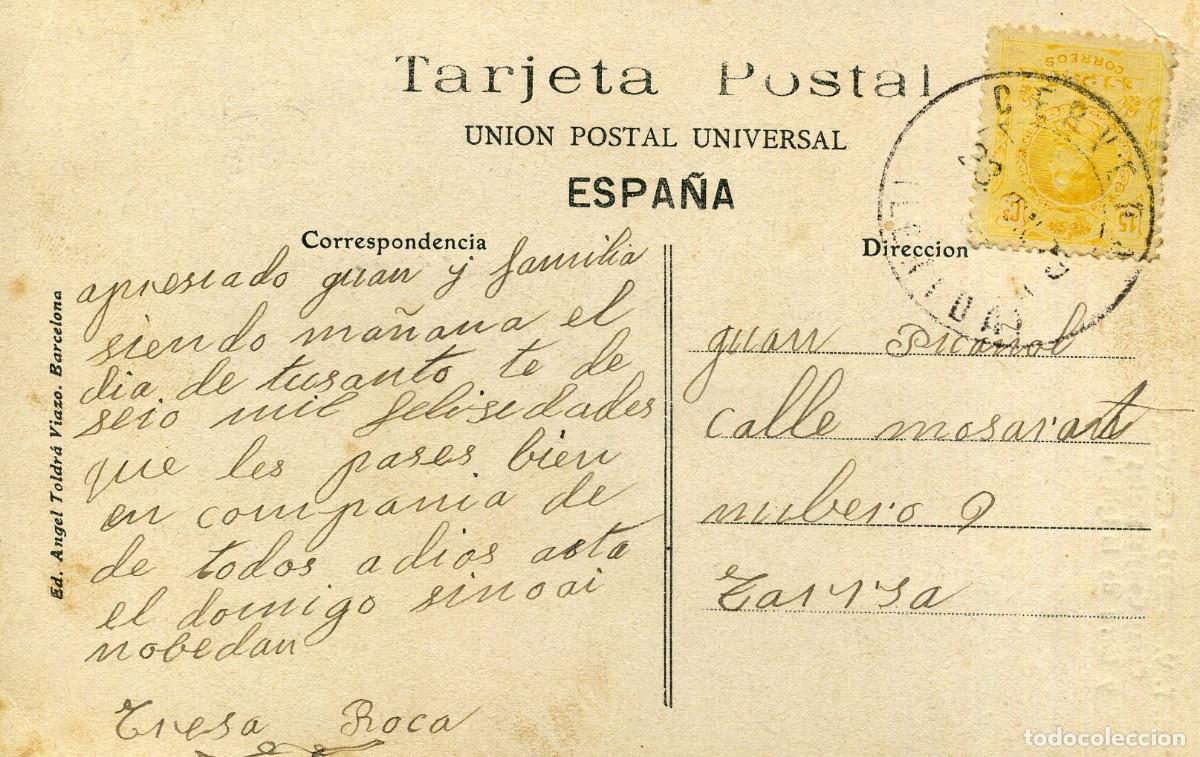 Tarjeta Postal
UNION POSTAL UNIVERSAL
ESPAÑA
Correspondencia
apresiado guan y familia
siendo mañana el
dia de tusanto te de
seio mil felisedades
que les pases bien
en compania de
de todos adios asta
el domigo sinoai
nobedau
Tresa Roca
Direccion
guan Picañol
calle mosarant
nubero 9
Tarrsa
Ed. Angel Toldrá Viazo. Barcelona
CORREOS
15 Cs
CERVERA
LERIDA
todocoleccion